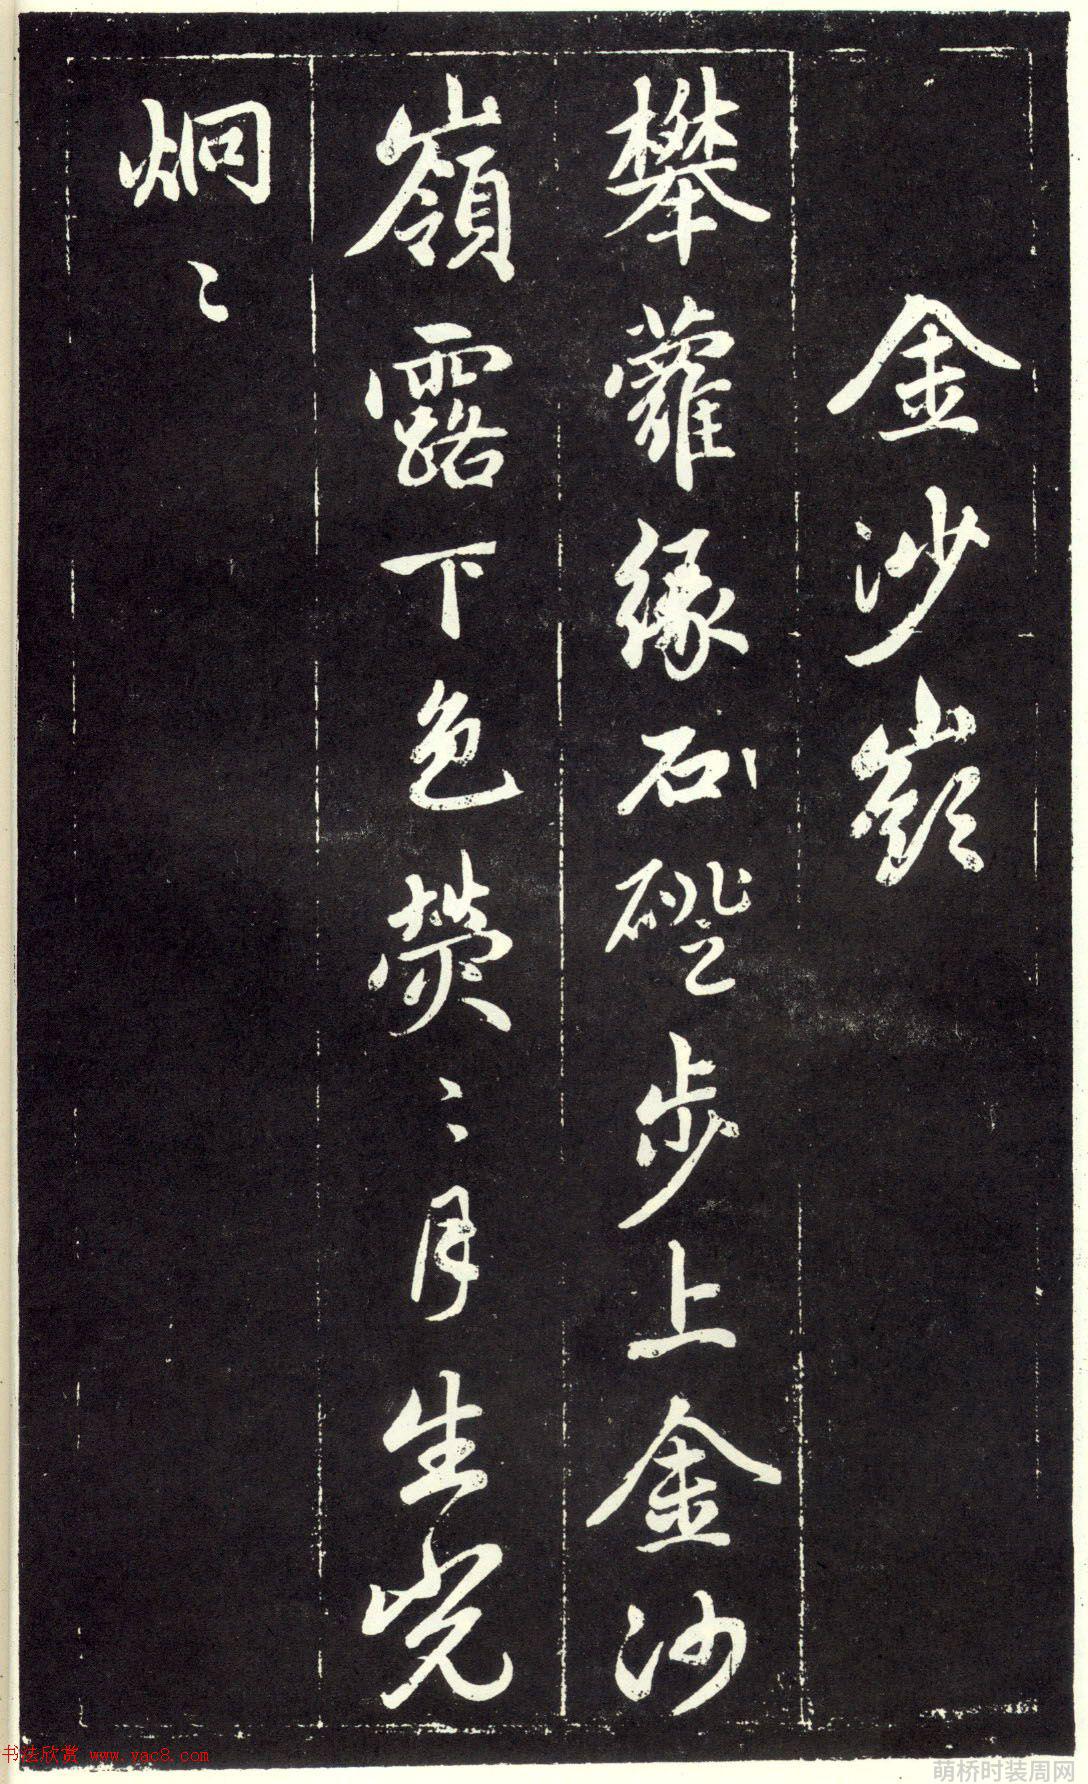 金沙嶺
攀蘿緣石磴步上金沙
嶺露下色熒〻月生光
炯〻
书法欣赏 www.yac8.com
萌桥时装周网